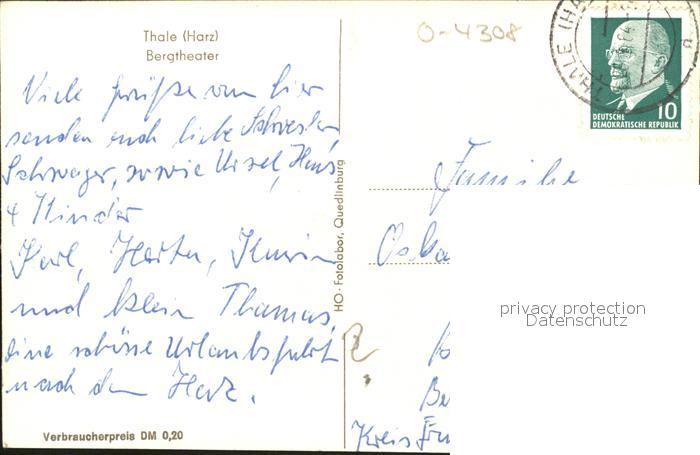 Thale (Harz)
Bergtheater
Viele Grüße von hier
senden euch liebe Schwester
Schwager, sowie Ursel, Hans
4 Kinder
Karl, Herta,
und klein Thomas,
eine schöne Urlaubsfahrt
nach dem Harz.
Verbraucherpreis DM 0,20
HO-Fotolabor, Quedlinburg
O-4308
THALE (HA
10
DEUTSCHE
DEMOKRATISCHE REPUBLIK
Familie
Oska
privacy protection
Datenschutz
Be
Kreis